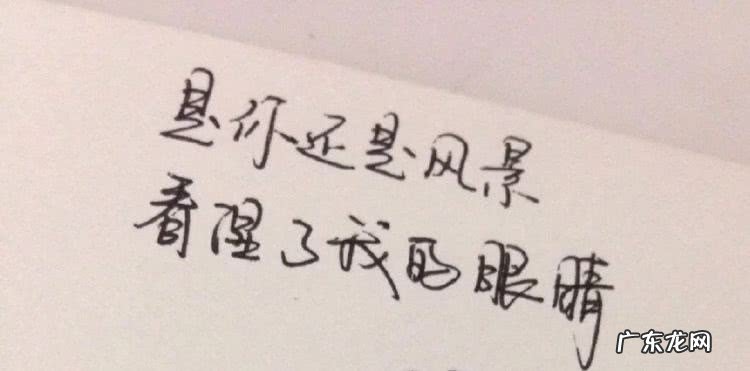 是你还是风景
看醒了我的眼睛
广东龙网